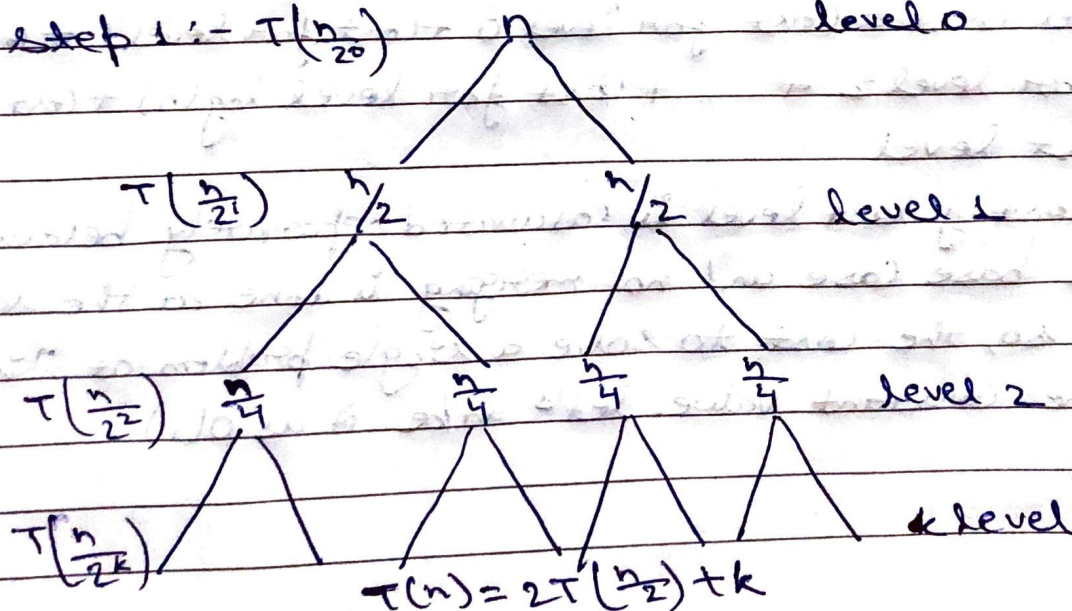 step 1 :- T(n/2⁰) n level 0
T(n/2¹) n/2 n/2 level 1
T(n/2²) n/4 n/4 n/4 n/4 level 2
T(n/2ᵏ) k level
T(n) = 2T(n/2) + k